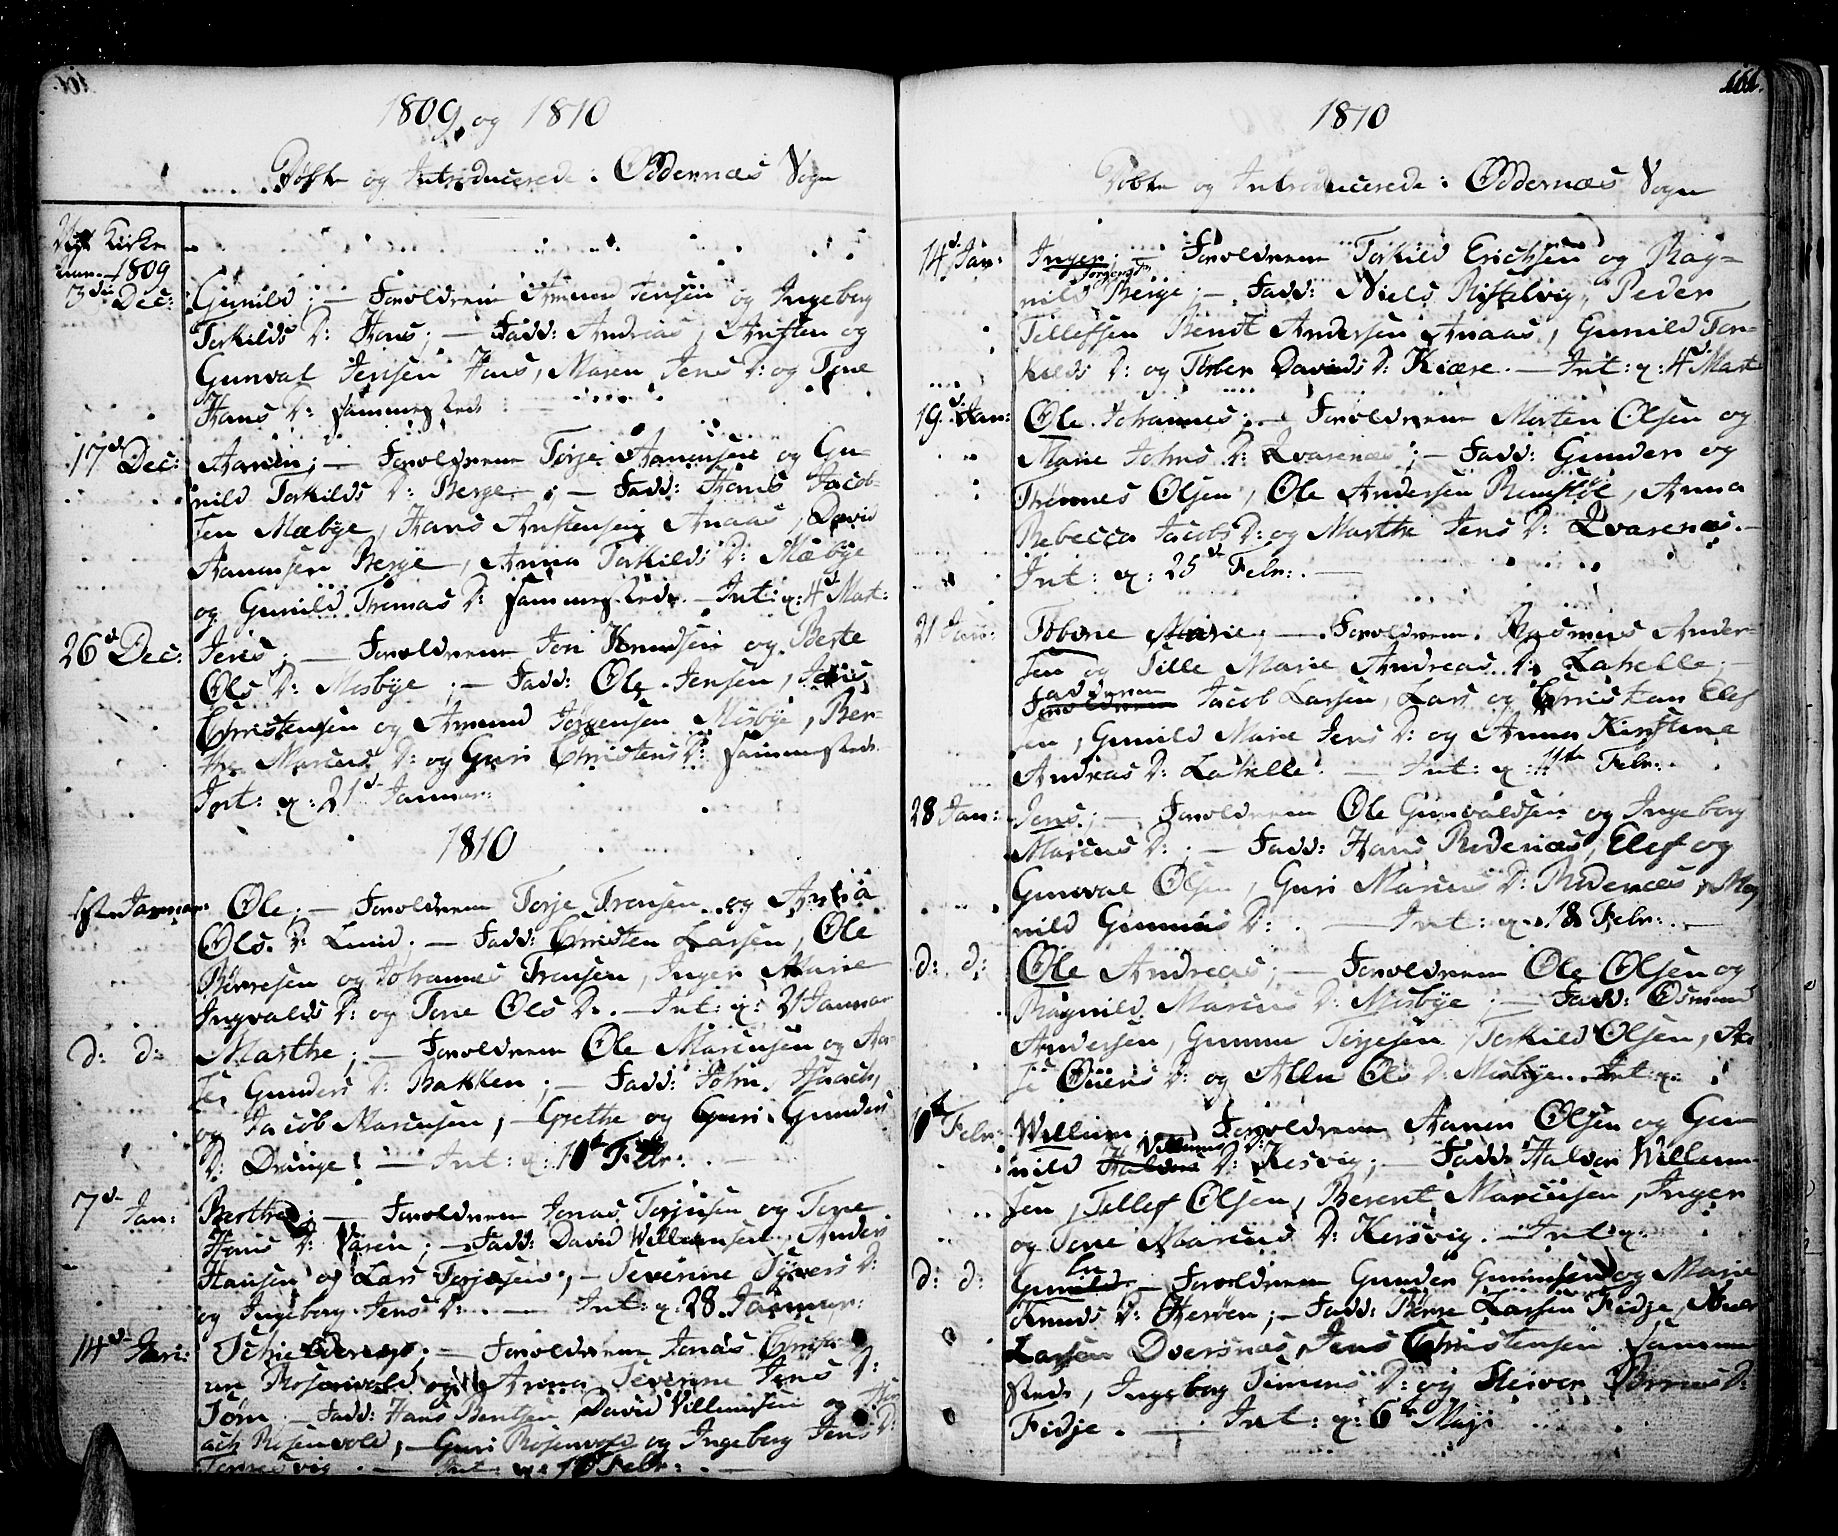 1809 og 1810
Døbte og Introducerede i Oddernæs Sogn
Kirke
1809
3die Dec: Gunild; — Forældrene Amund Jensen og Ingeborg
Torkilds D: Haus; — Fadd: Andreas, Austen og
Gunval Jensen Haus, Maren Jens D: og Tone
Hans D: sammesteds
17d Dec: Aanen; — Forældrene Torje Aanensen og Gu-
nild Torkilds D: Berge; — Fadd: Hans Jacob-
sen Mæbye, Hans Austensen Anaas, David
Aanensen Berge, Anna Torkilds D: Mæbye
og Gunild Thomas D: sammesteds. — Int: q: 4d Mart:
26d Dec: Jens; — Forældrene Jon Knudsen og Berte
Ols D: Mosbye; — Fadd: Ole Jensen, Jens
Christensen og Amund Jørgensen Mosbye, Ber-
the Marcus D: og Guri Christens D: sammesteds
Int: q: 21d Januar:
1810
1ste Januar: Ole; — Forældrene Torje Fransen og
Ols D: Lund. — Fadd: Christen Larsen, Ole
Børresen og Johannes Fransen, Inger Marie
Ingvalds D: og Tone Ols D: — Int: q: 21 Januar
d: d: Marthe; — Forældrene Ole Marcusen og Aa-
se Gunders D: Bakken; — Fadd: John, Isaach,
og Jacob Marcusen, — Grethe og Guri Gunders
D: Drange! — Int: q: 11t Febr:
7d Jan: Berthe; — Forældrene Jonas Torjusen og Tone
Hans D: Varen; — Fadd: David Willumsen, Anders
Hansen og Lars Torjesen, — Severine Syvers D:
og Ingeborg Jens D: — Int: q: 28 Januar:
14d Jan: — Forældrene Jonas
Rosenvold og Anna Severine Jens D:
— Fadd: Hans Bentsen, David Villumsen og
Rosenvold, — Guri Rosenvold og Ingeborg Jens D:
— Int: q: Febr:
1810
Døbte og Introducerede i Oddernæs Sogn
14d Jan: Inger; — Forældrene Torkild Erichsen og Rag-
nild Jørgens D: Berge; — Fadd: Niels, Peder
Tellefsen Bendt Andersen Anaas, Gunild Tor-
kilds D: og Torber Davids D: Kiære. — Int: q: 4d Mart
19d Jan: Ole Johannes; — Forældrene Morten Olsen og
Marie Johns D: Qvarenes; — Fadd: Gunder og
Thomes Olsen, Ole Andersen Romstøl, Anna
Rebecca Jacobs D: og Marthe Jens D: Qvarenes. —
Int: q: 25d Febr: —
21 Jan: Tobine Marie; — Forældrene Rasmus Ander-
sen og Sille Marie Andreas D: Lahelle; —
Fadderne Jacob Larsen, Lars og Christian Elef
sen, Gunild Marie Jens D: og Anna Kirstine
Andreas D: Lahelle. — Int: q: 11te Febr:
28 Jan: Jens; — Forældrene Ole Gunvaldsen og Ingeborg
Marcus D: ; — Fadd: Hans Rodenæs, Elef og
Gunval Olsen, Guri Marcus D: Rodenæs, Rag
nild Gunnus D: — Int: q: 18 Febr: —
d: d: Ole Andreas; — Forældrene Ole Olsen og
Ragnild Marcus D: Mosbye; — Fadd: Osmund
Andersen, Gunme Torjesen, Torkild Olsen, Aa
se Øiens D: og Allu Ols D: Mosbye. Int: q:
11te Febr: Willum; — Forældrene Aanen Olsen og Gun
nild Villums D: Kosvig; — Fadd: Halvor Willum
sen, Tellef Olsen, Berent Marcusen, Inger
og Tone Marcus D: Kosvig. — Int: q:
d: d: — Forældrene Gunder Gunnusen og Marie
Knuds D: Herøen; — Fadd: Børre Larsen Fidje,
Larsen Dversnæs, Jens Christensen samme
steds, Ingeborg Simens D: og Børres D:
Fidje. — Int: q: 6te Maji